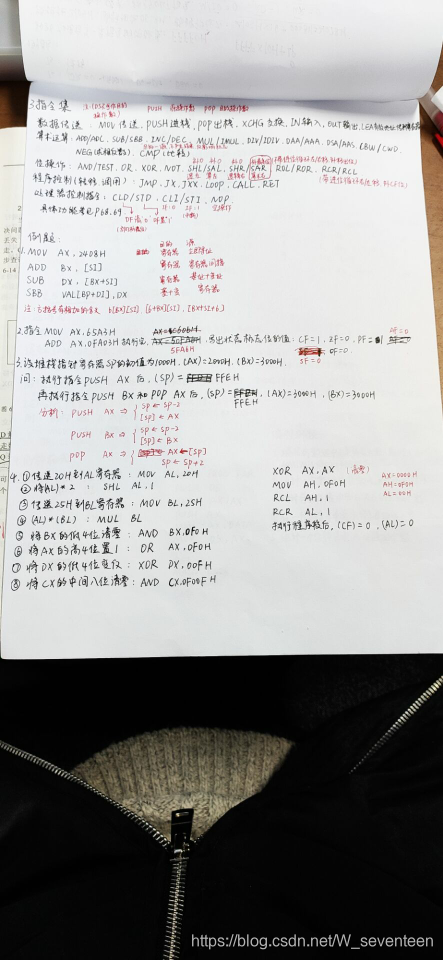 3.指令集
PUSH 源操作数 POP 目的操作数
数据传送：MOV 传送，PUSH进栈，POP出栈，XCHG交换，IN输入，OUT输出，LEA
算术运算：ADD/ADC，SUB/SBB，INC/DEC，MUL/IMUL，DIV/IDIV，DAA/AAA，DSA/AAS，CBW/CWD，
NEG(求相反数)，CMP(比较)
位操作：AND/TEST，OR，XOR，NOT，SHL/SAL，SHR/SAR，ROL/ROR，RCR/RCL
程序控制(转移 调用)：JMP，JX，JXX，LOOP，CALL，RET
处理器控制指令：CLD/STD，CLI/STI，NOP
具体功能看老P68.69
例题：
目的 源
1. MOV AX, 2408H 寄存器 立即寻址
ADD BX, [SI] 寄存器 寄存器间接
SUB DX, [BX+SI] 寄存器 基址+变址
SBB VAL[BP+DI], DX 基+变 寄存器
2.指令 MOV AX, 65A3H
ADD AX, 0FA03H 执行后, 写出状态标志位的值: CF=1, ZF=0, PF=1
5FA6H
OF=0
SF=0
3.设堆栈指针寄存器SP的初值为1000H, (AX)=2000H, (BX)=3000H,
问：执行指令PUSH AX 后, (SP)= FFEH
再执行指令 PUSH BX 和 POP AX 后, (SP)= FFEH, (AX)=3000H, (BX)=3000H
分析：PUSH AX ⇒ { SP ← SP-2
[SP] ← AX
PUSH BX ⇒ { SP ← SP-2
[SP] ← BX
POP AX ⇒ { AX ← [SP]
SP ← SP+2
4. ①传送20H到AL寄存器：MOV AL, 20H
②将(AL)*2：SHL AL, 1
③传送25H到BL寄存器：MOV BL, 25H
④(AL)*(BL)：MUL BL
⑤将BX的低4位清零：AND BX, 0F0H
⑥将AX的高4位置1：OR AX, 0F0H
⑦将DX的低4位变反：XOR DX, 00FH
⑧将CX的中间八位清零：AND CX, 0F00FH
XOR AX, AX (清零) AX=0000H
MOV AH, 0F0H AH=0F0H
RCL AH, 1 AL=00H
RCR AL, 1
执行程序段后, (CF)=0, (AL)=0
https://blog.csdn.net/W_seventeen